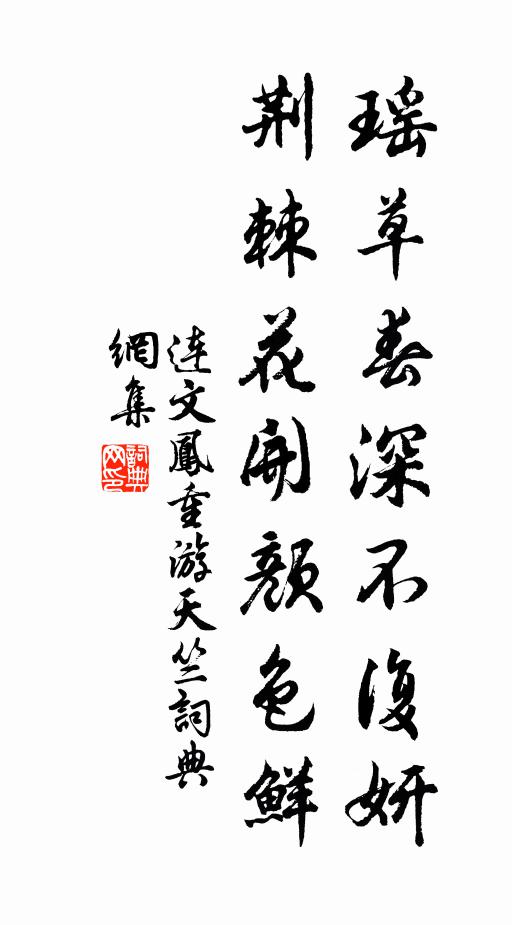 瑶草春深不復妍
荆棘花開顔色鮮
連文鳳重游天竺詞典
網集
詞典
网印